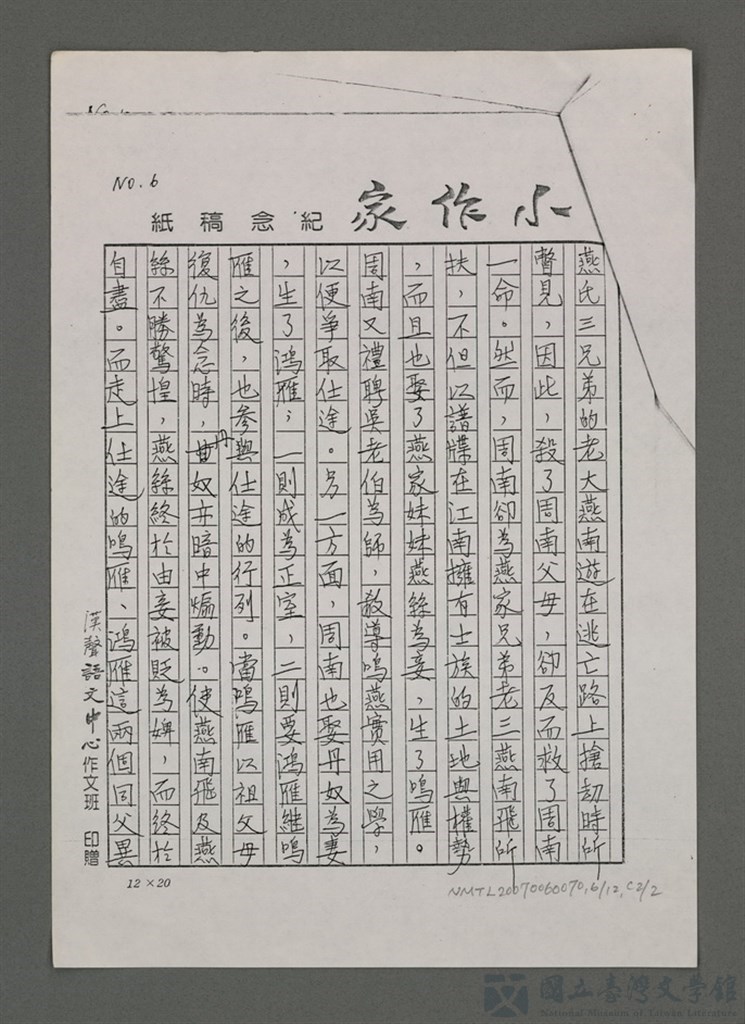 No. 6
小作家
紀念稿紙
燕氏三兄弟的老大燕南遊在逃亡路上搶劫時所
瞥見,因此,殺了周南父母,卻反而救了周南
一命。然而,周南卻為燕家兄弟老三燕南飛所
扶,不但以譜牒在江南擁有士族的土地與權勢
,而且也娶了燕家妹妹燕絲為妾,生了鳴雁。
周南又禮聘吳老伯為師,教導鳴燕實用之學,
以便爭取仕途。另一方面,周南也娶丹奴為妻
,生了鴻雁;一則成為正室,二則要鴻雁繼鳴
雁之後,也參與仕途的行列。當鳴雁以祖父母
復仇為念時,丹奴亦暗中煽動。使燕南飛及燕
絲不勝驚惶,燕絲終於由妾被貶為婢,而終於
自盡。而走上仕途的鳴雁、鴻雁這兩個同父異
漢聲語文中心作文班 印贈
12×20
NMTL20070060070,6/12,C2/2
國立臺灣文學館
National Museum of Taiwan Literature